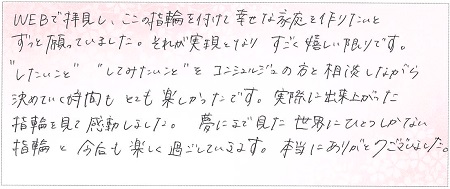 WEBで拝見し、ここの指輪を付けて幸せな家庭を作りたいと
ずっと願っていました。それが実現となり すごく嬉しい限りです。
"したいこと" "してみたいこと"を コンシェルジュの方と相談しながら
決めていく時間も とても楽しかったです。実際に出来上がった
指輪を見て感動しました。 夢にまで見た世界にひとつしかない
指輪と 今後も楽しく過ごしていきます。本当にありがとうございました。